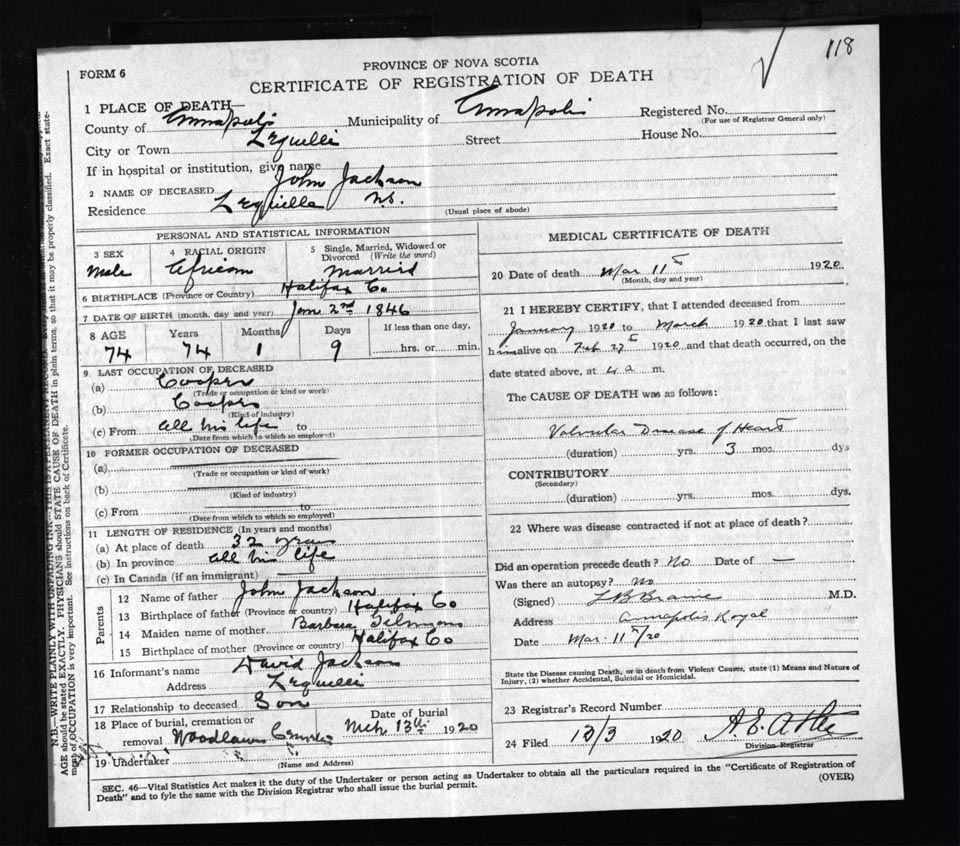 118
FORM 6
PROVINCE OF NOVA SCOTIA
CERTIFICATE OF REGISTRATION OF DEATH
1 PLACE OF DEATH—
County of Annapolis Municipality of Annapolis Registered No.
(For use of Registrar General only)
City or Town Lequille Street House No.
If in hospital or institution, give name
2 NAME OF DECEASED John Jackson
Residence Lequille N.S.
(Usual place of abode)
PERSONAL AND STATISTICAL INFORMATION
3 SEX 4 RACIAL ORIGIN 5 Single, Married, Widowed or Divorced (Write the word)
Male African Married
6 BIRTHPLACE (Province or Country) Halifax Co
7 DATE OF BIRTH (month, day and year) Jan 2nd 1846
8 AGE Years Months Days If less than one day,
74 74 1 9 hrs. or min.
9 LAST OCCUPATION OF DECEASED
(a) Cooper
(Trade or occupation or kind or work)
(b) Cooper
(Kind of industry)
(c) From all his life to
(Date from which to which so employed)
10 FORMER OCCUPATION OF DECEASED
(a)
(Trade or occupation or kind of work)
(b)
(Kind of industry)
(c) From to
(Date from which to which so employed)
11 LENGTH OF RESIDENCE (In years and months)
(a) At place of death 32 years
(b) In province all his life
(c) In Canada (if an immigrant)
Parents
12 Name of father John Jackson
13 Birthplace of father (Province or country) Halifax Co
14 Maiden name of mother Barbara
15 Birthplace of mother (Province or country) Halifax Co
16 Informant's name David Jackson
Address Lequille
17 Relationship to deceased Son
18 Place of burial, cremation or removal Woodlawn Date of burial Mch 13th 1920
19 Undertaker
(Name and Address)
MEDICAL CERTIFICATE OF DEATH
20 Date of death Mar 11th 1920
(Month, day and year)
21 I HEREBY CERTIFY, that I attended deceased from
January 1920 to March 1920 that I last saw
him alive on Feb 27th 1920 and that death occurred, on the
date stated above, at 4 a m.
The CAUSE OF DEATH was as follows:
Valvular Disease of Heart
(duration) yrs. 3 mos. dys
CONTRIBUTORY
(Secondary)
(duration) yrs. mos. dys.
22 Where was disease contracted if not at place of death?
Did an operation precede death? No Date of —
Was there an autopsy? No
(Signed) L B Braine M.D.
Address Annapolis Royal
Date Mar 11th/20
State the Disease causing Death, or in death from Violent Causes, state (1) Means and Nature of
Injury, (2) whether Accidental, Suicidal or Homicidal.
23 Registrar's Record Number
24 Filed 12/3 1920
Division Registrar
SEC. 46—Vital Statistics Act makes it the duty of the Undertaker or person acting as Undertaker to obtain all the particulars required in the "Certificate of Registration of
Death" and to fyle the same with the Division Registrar who shall issue the burial permit.
(OVER)
AGE should be stated EXACTLY. PHYSICIANS should STATE CAUSE OF DEATH in plain terms, so that it may be properly classified. Exact state-
ment of OCCUPATION is very important. See instructions on back of Certificate.